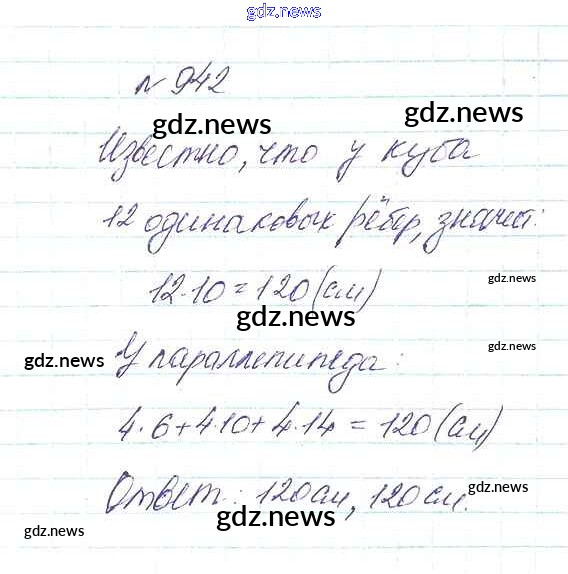 gdz.news
№ 942
gdz.news
gdz.news
Известно, что у куба
12 одинаковых рёбер, значит:
12·10=120(см)
gdz.news
gdz.news
gdz.news
gdz.news
У параллепипеда:
4·6+4·10+4·14=120(см)
Ответ: 120см, 120см.
gdz.news
gdz.news
gdz.news